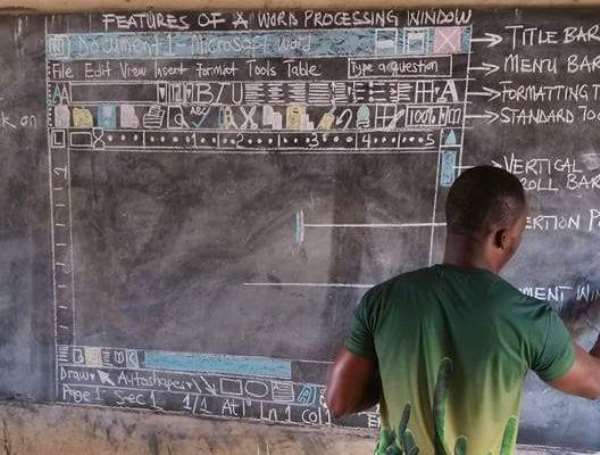 FEATURES OF A WORD PROCESSING WINDOW
Document 1 - Microsoft Word
TITLE BAR
File Edit View Insert Format Tools Table
Type a question
MENU BAR
A B I U A
FORMATTING T
ABC 100%
STANDARD TOO
k on
L 1 2 3 4 5
VERTICAL
ROLL BAR
ERTION P
UMENT WIN
Draw Autoshapes
Page 1 Sec 1 1/1 At 1" Ln 1 Col 1